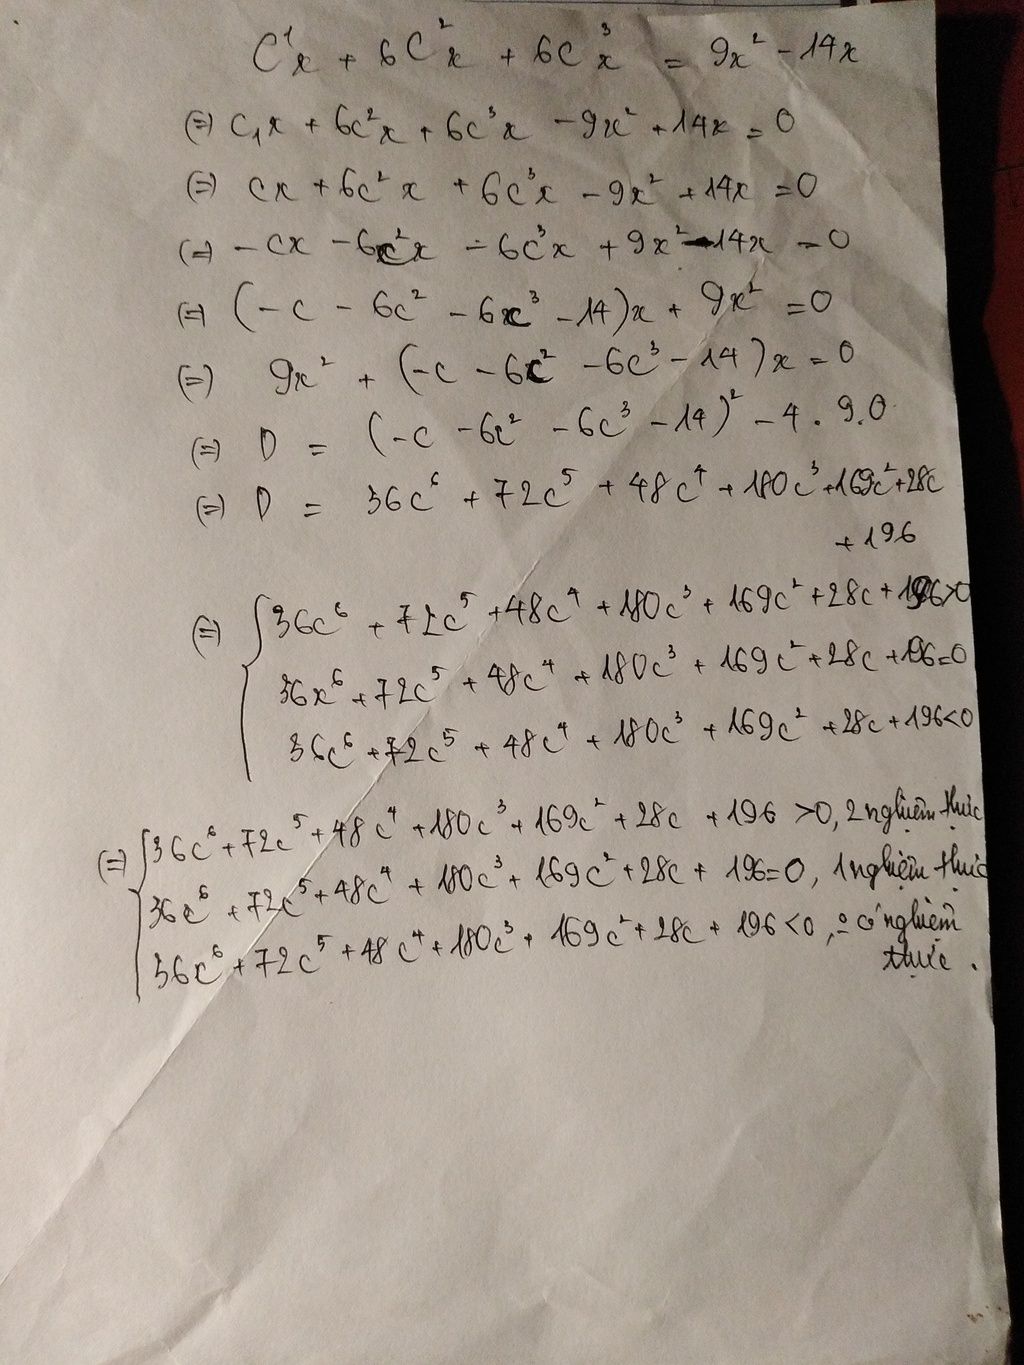 C¹x + 6C²x + 6C³x = 9x² - 14x
(=) C₁x + 6c²x + 6c³x - 9x² + 14x = 0
(=) cx + 6c²x + 6c³x - 9x² + 14x = 0
(=) - cx - 6c²x - 6c³x + 9x² - 14x = 0
(=) (- c - 6c² - 6c³ - 14)x + 9x² = 0
(=) 9x² + (-c - 6c² - 6c³ - 14)x = 0
(=) D = (-c - 6c² - 6c³ - 14)² - 4 . 9.0
(=) D = 36c⁶ + 72c⁵ + 48c⁴ + 180c³ + 169c² + 28c
+ 196
(=) { 36c⁶ + 72c⁵ + 48c⁴ + 180c³ + 169c² + 28c + 196 > 0
36x⁶ + 72c⁵ + 48c⁴ + 180c³ + 169c² + 28c + 196 = 0
36c⁶ + 72c⁵ + 48c⁴ + 180c³ + 169c² + 28c + 196 < 0
(=) { 36c⁶ + 72c⁵ + 48c⁴ + 180c³ + 169c² + 28c + 196 > 0, 2 nghiệm thực
36c⁶ + 72c⁵ + 48c⁴ + 180c³ + 169c² + 28c + 196 = 0, 1 nghiệm thực
36c⁶ + 72c⁵ + 48c⁴ + 180c³ + 169c² + 28c + 196 < 0, có nghiệm
thực.